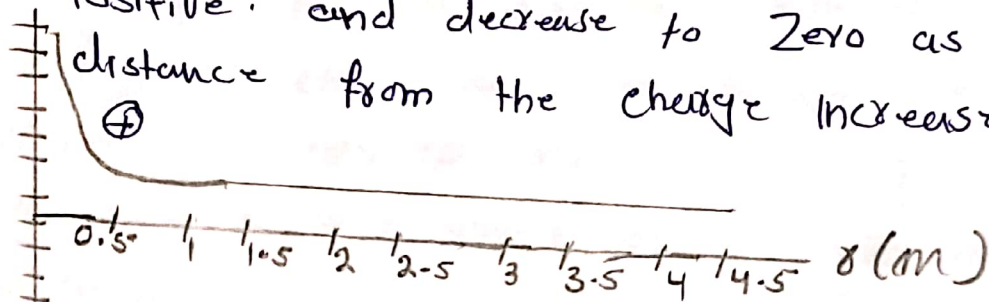 and decrease to Zero as
distance from the charge Increase
⊕
0.5 1 1.5 2 2.5 3 3.5 4 4.5 r(m)